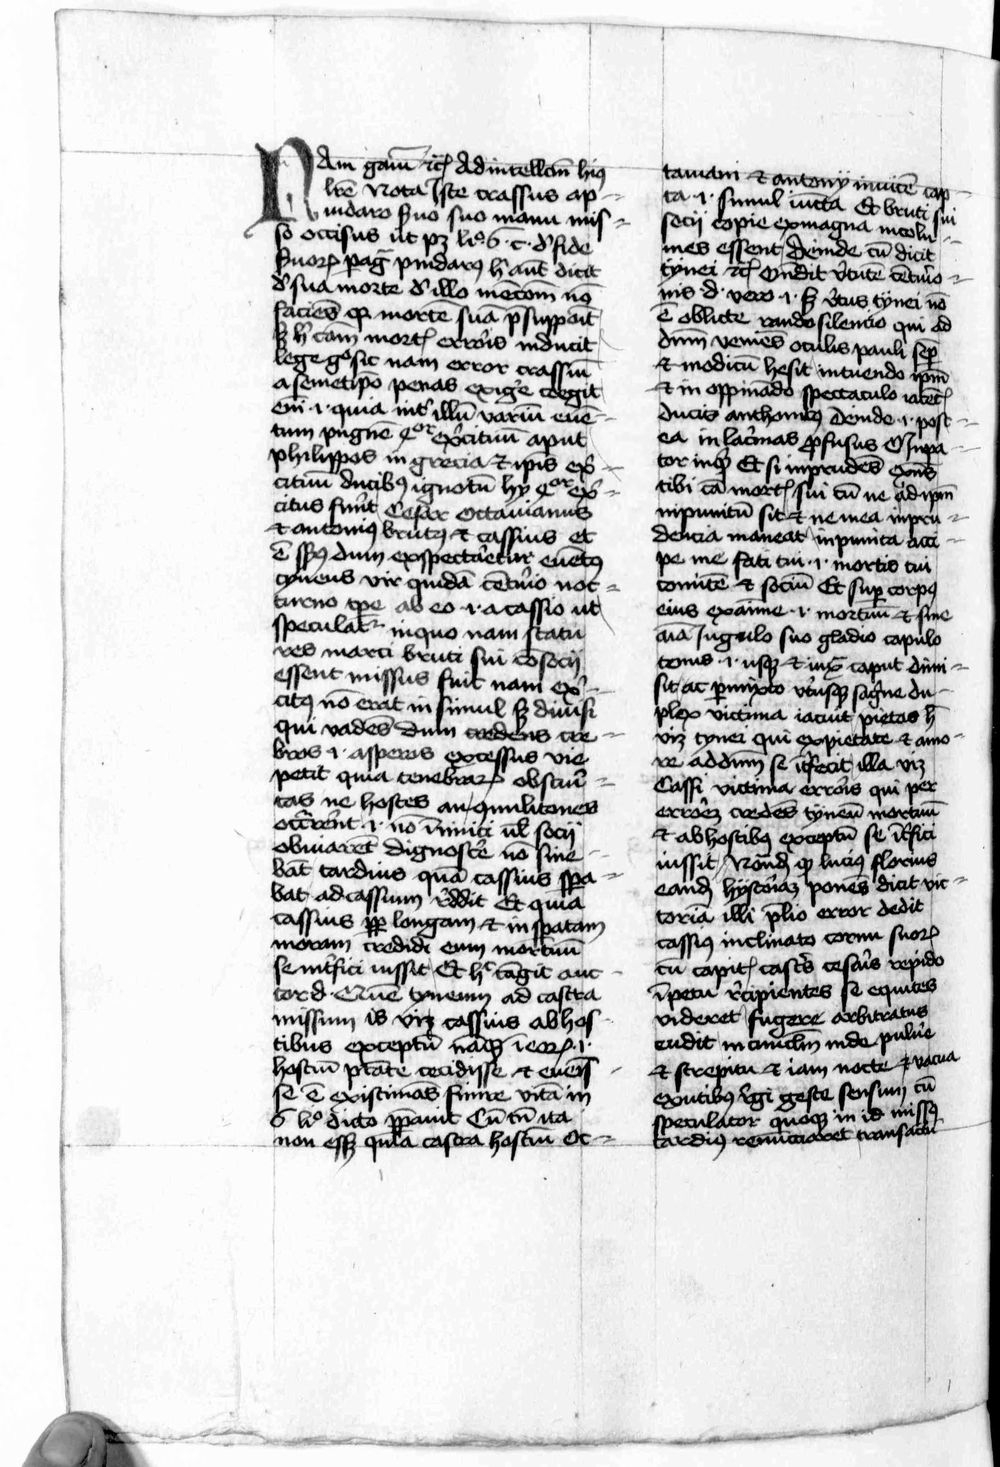 Nam gaiū ꝛc̄ Ad intellectū hiꝰ
lr̄e Nota Iste crassus ap
pindaro ẜuo suo manu mis
so occisus ut pꝫ li° 6 · c · d' fide
ẜuoꝝ pindarꝰ h' aūt dicit
d' sua morte d' illo mēcōm nō
faciēs qꝫ mortē sua p̄suppoīt
ꝫ h' cām mort̄ erroris inducit
lege g° sic nam error crassiū
a semetip̄o penas exig'e coegit
em̄ · i · quia int' illū variū euē
tum pugne q̄or ex'cituū aput
philippos in grecia et ip̄is ex'
cituū ducibꝰ ignotū hy q̄or ex'
citus fuer̄t Cesar Octauianus
et antoniꝰ brutꝰ et cassius et
ē dum exspectaretur euētꝰ
tyneus vir quidā cētur̄io noc
turno tp̄e ab eo · i · a cassio ut
specularet inquo nam statu
res marci bruti sui cōsocij
essent missus fuit nam ex'
citꝰ nō erat in simul ꝫ diuisi
qui vadēs dum credens cre
bros · i · asperos excessus vie
petit quia tenebraꝝ obscur̄i
tas ne hostes an q̄militones
occ'rer̄nt · i · nō inimici ūl socij
obuiaret dignosc'e nō sine
bāt tardius quā cassius spera
bat ad cassium r̄ddit Et quia
cassius ꝓpt' longam et insperatam
moram credidi eum mortuū
se int'fici iussit Et h° tāgit auc
tor d · Quē tyneum ad castra
missum is viꝫ cassius ab hos
tibus exceptū nāqꝫ ī eoꝝ · i ·
hostiū p̄tate cecidisse et
se ē existimās finire vitā in
6 li° dicto Cū tn̄ ita
non esset quia castra hostiū Oc
tauiani et antonij inuicē cap
ta · i · simul iūcta Et bruti sui
socij copie ex magna incolu
mes essent deinde cū dicit
tynei ꝛc̄ Ondit v'tutē cētur̄io
nis d · vero · i · ꝫ v'tus tynei nō
ē oblicte silencio qui ad
dnm̄ veniēs oculis pauli sꝑ
et modicū hesit intuendo ip̄m
et in oppinādo spectaculo iacēt̄
ducis anthonicꝰ deinde · i · post
ea in lac'mas ꝓfusus
tor inq̄t Et si inprudēs
tibi cā mort̄ sui cū ne ad ip̄m
inpunitū sit et ne mea inpru
dencia maneat inpunita acci
pe me fati tui · i · mortis tui
comitē et sociū Et suꝑ corpꝰ
eius exanime · i · mortuū et sine
aīa Iugulo suo gladio capulo
tenus · i · usqꝫ et iuxᵃ caput dimi
sit ac ꝑmixto vt'usqꝫ sāg'ne du
plex victima iacuit pietas h'
viꝫ tynei qui ex pietate et amo
re ad dnm̄ se int'fecit illa viꝫ
Cassi victima error̄is qui per
error̄ē credēs tyneū mortuū
et ab hostibꝰ exceptū se int'fici
iussit Notand' qꝫ lucius florius
eand' hystor̄iaꝫ ponēs dicit vic
toriā illi p̄lio error dedit
cassiꝰ inclinato cornu suoꝝ
cū capit̄ cast'is cesar̄is repido
īpetu r̄cipientes se equites
videret fugere arbitratus
euadit in cumulū inde pulu'e
et strepitu et iam nocte et vacua
exutibus v'gi geste sensum cū
speculator quoqꝫ in id missꝰ
tardiꝰ renūciaret transactū